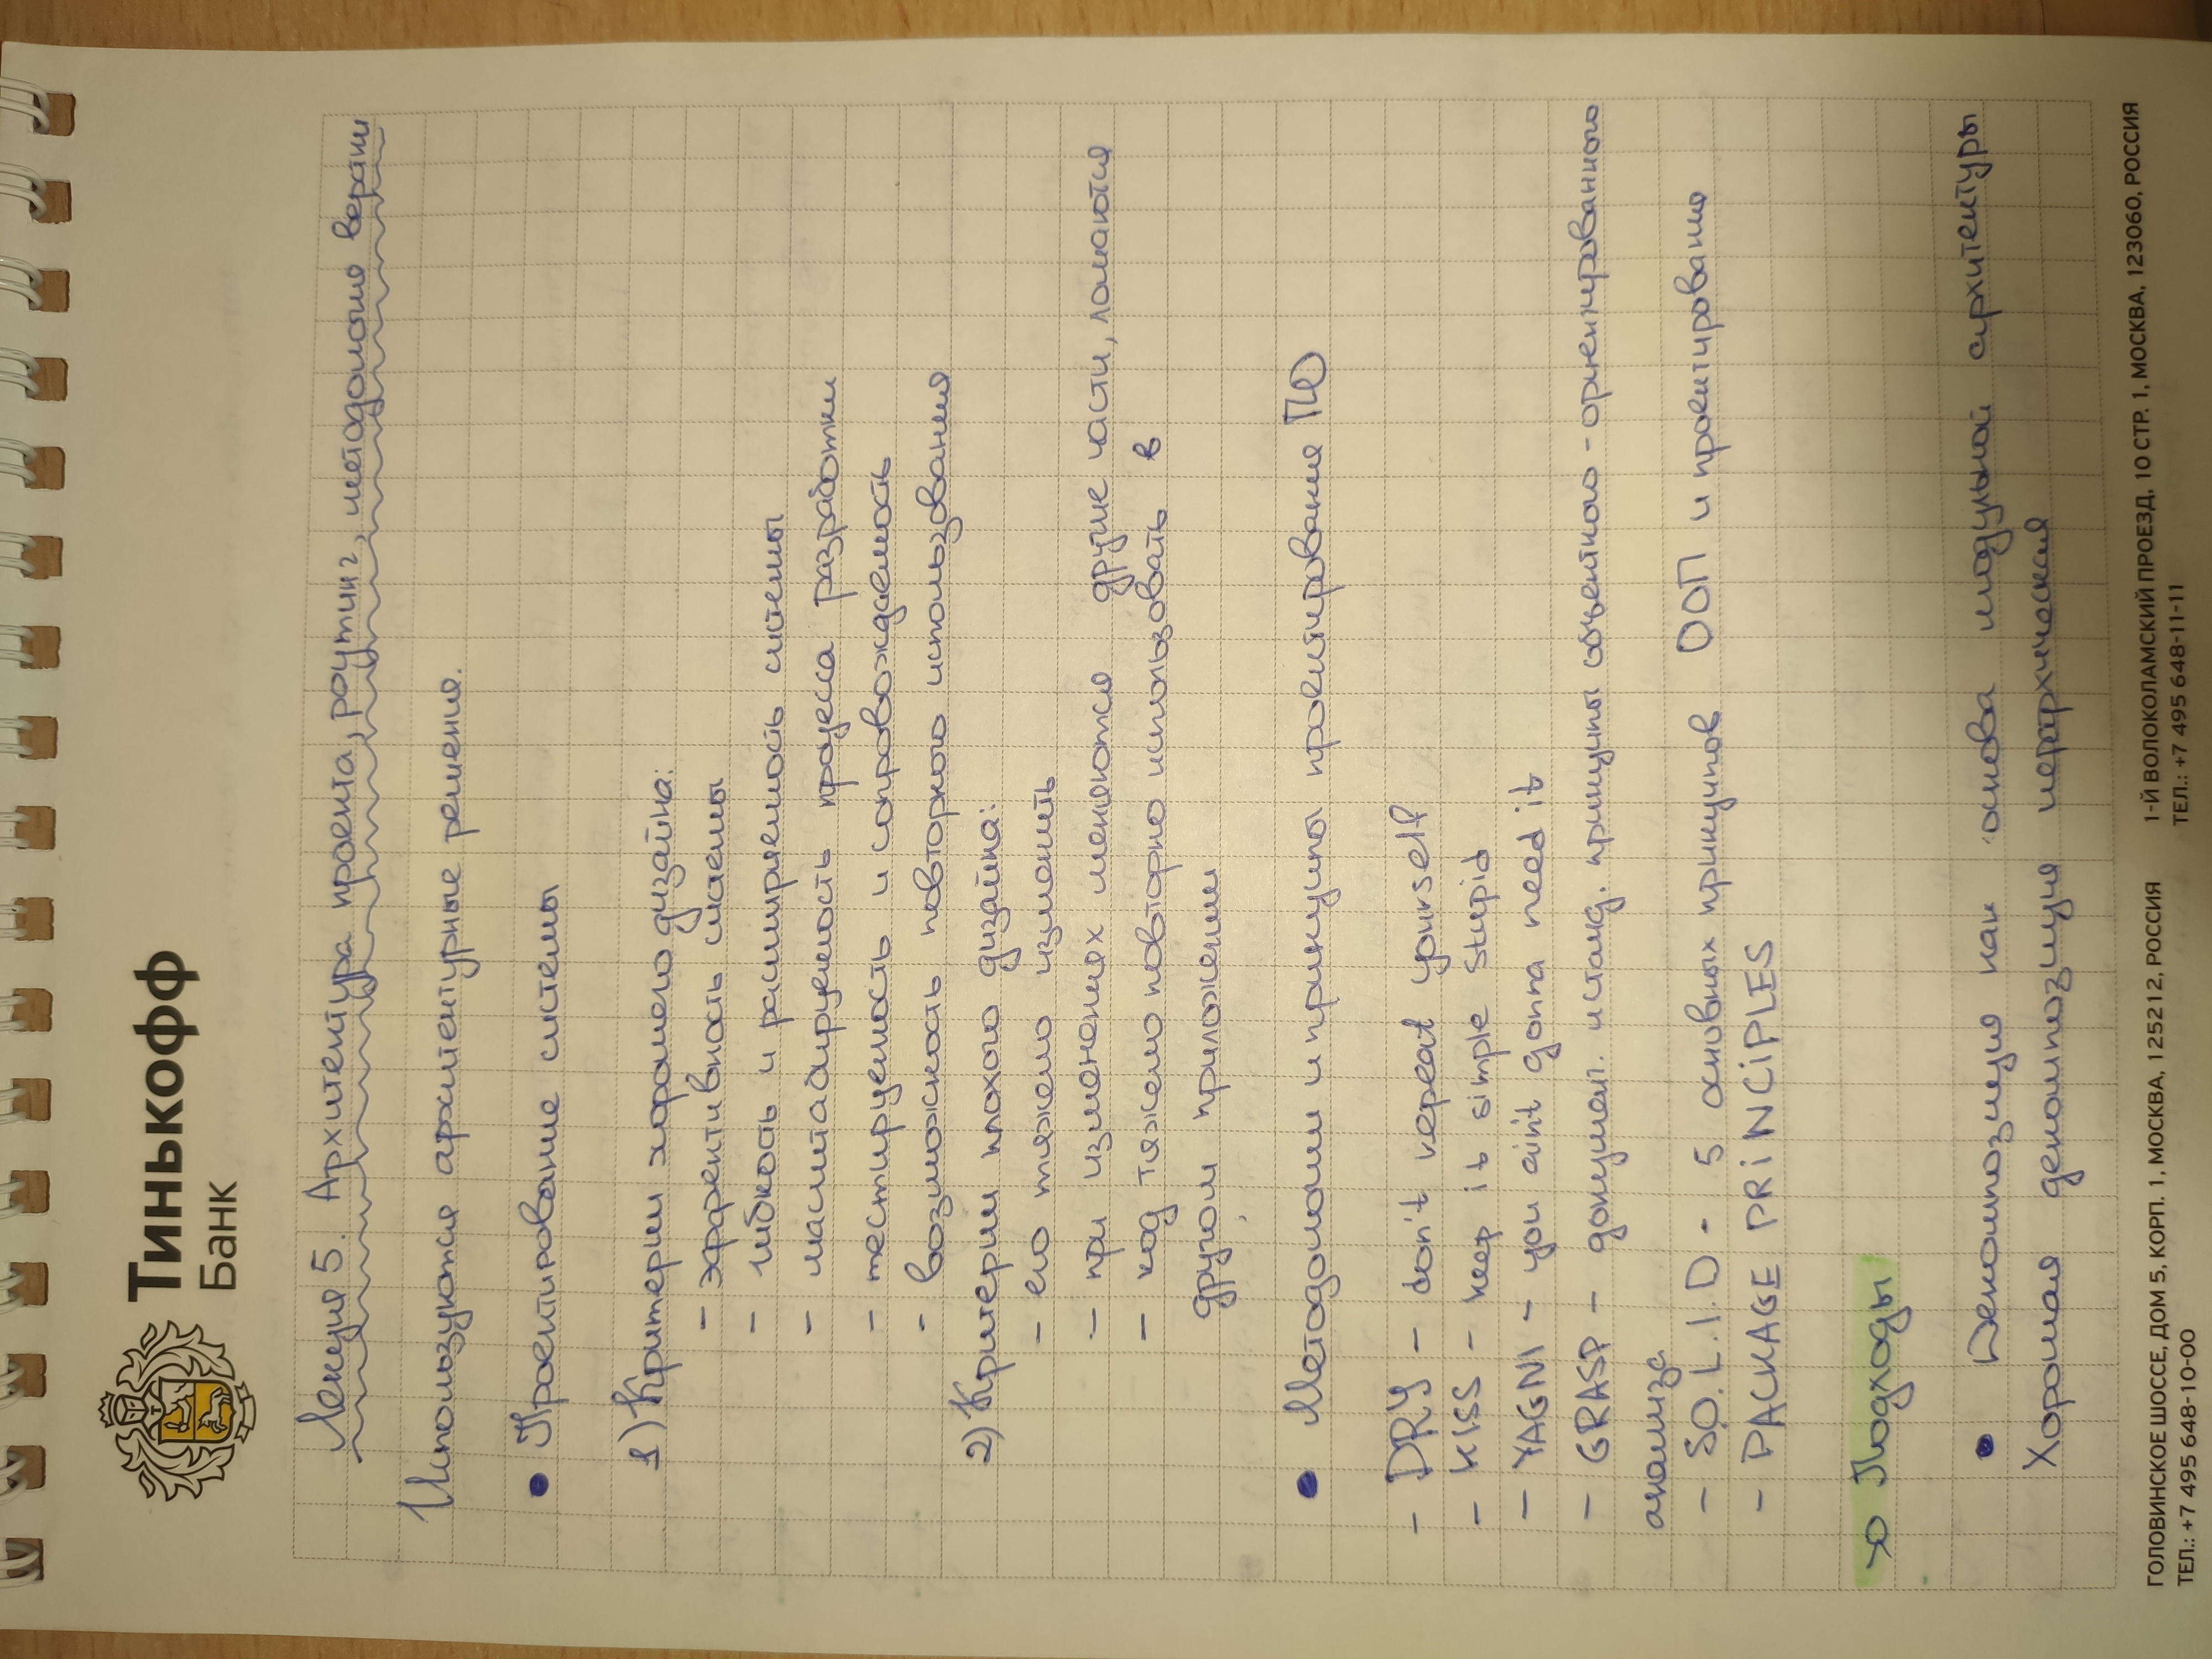 Тинькофф
Банк
Лекция 5. Архитектура проекта, роутинг, методология верстки
Используются архитектурные решения.
• Проектирование системы
1) Критерии хорошего дизайна:
- эффективность системы
- гибкость и расширяемость системы
- масштабируемость процесса разработки
- тестируемость и сопровождаемость
- возможность повторного использования
2) Критерии плохого дизайна:
- его тяжело изменить
- при изменениях меняются другие части, ломаются
- код тяжело повторно использовать в
другом приложении
• Методологии и принципы проектирования ПО
- DRY - don't repeat yourself
- KISS - keep it simple stupid
- YAGNI - you ain't gonna need it
- GRASP - документ. и станд. принципы объектного-ориентированного
анализа
- S.O.L.I.D - 5 основных принципов ООП и проектирования
- PACKAGE PRINCIPLES
Подходы
• Декомпозиция как основа модульной архитектуры
Хорошая декомпозиция иерархическая
ГОЛОВИНСКОЕ ШОССЕ, ДОМ 5, КОРП. 1, МОСКВА, 125212, РОССИЯ
ТЕЛ.: +7 495 648-10-00
1-Й ВОЛОКОЛАМСКИЙ ПРОЕЗД, 10 СТР. 1, МОСКВА, 123060, РОССИЯ
ТЕЛ.: +7 495 648-11-11